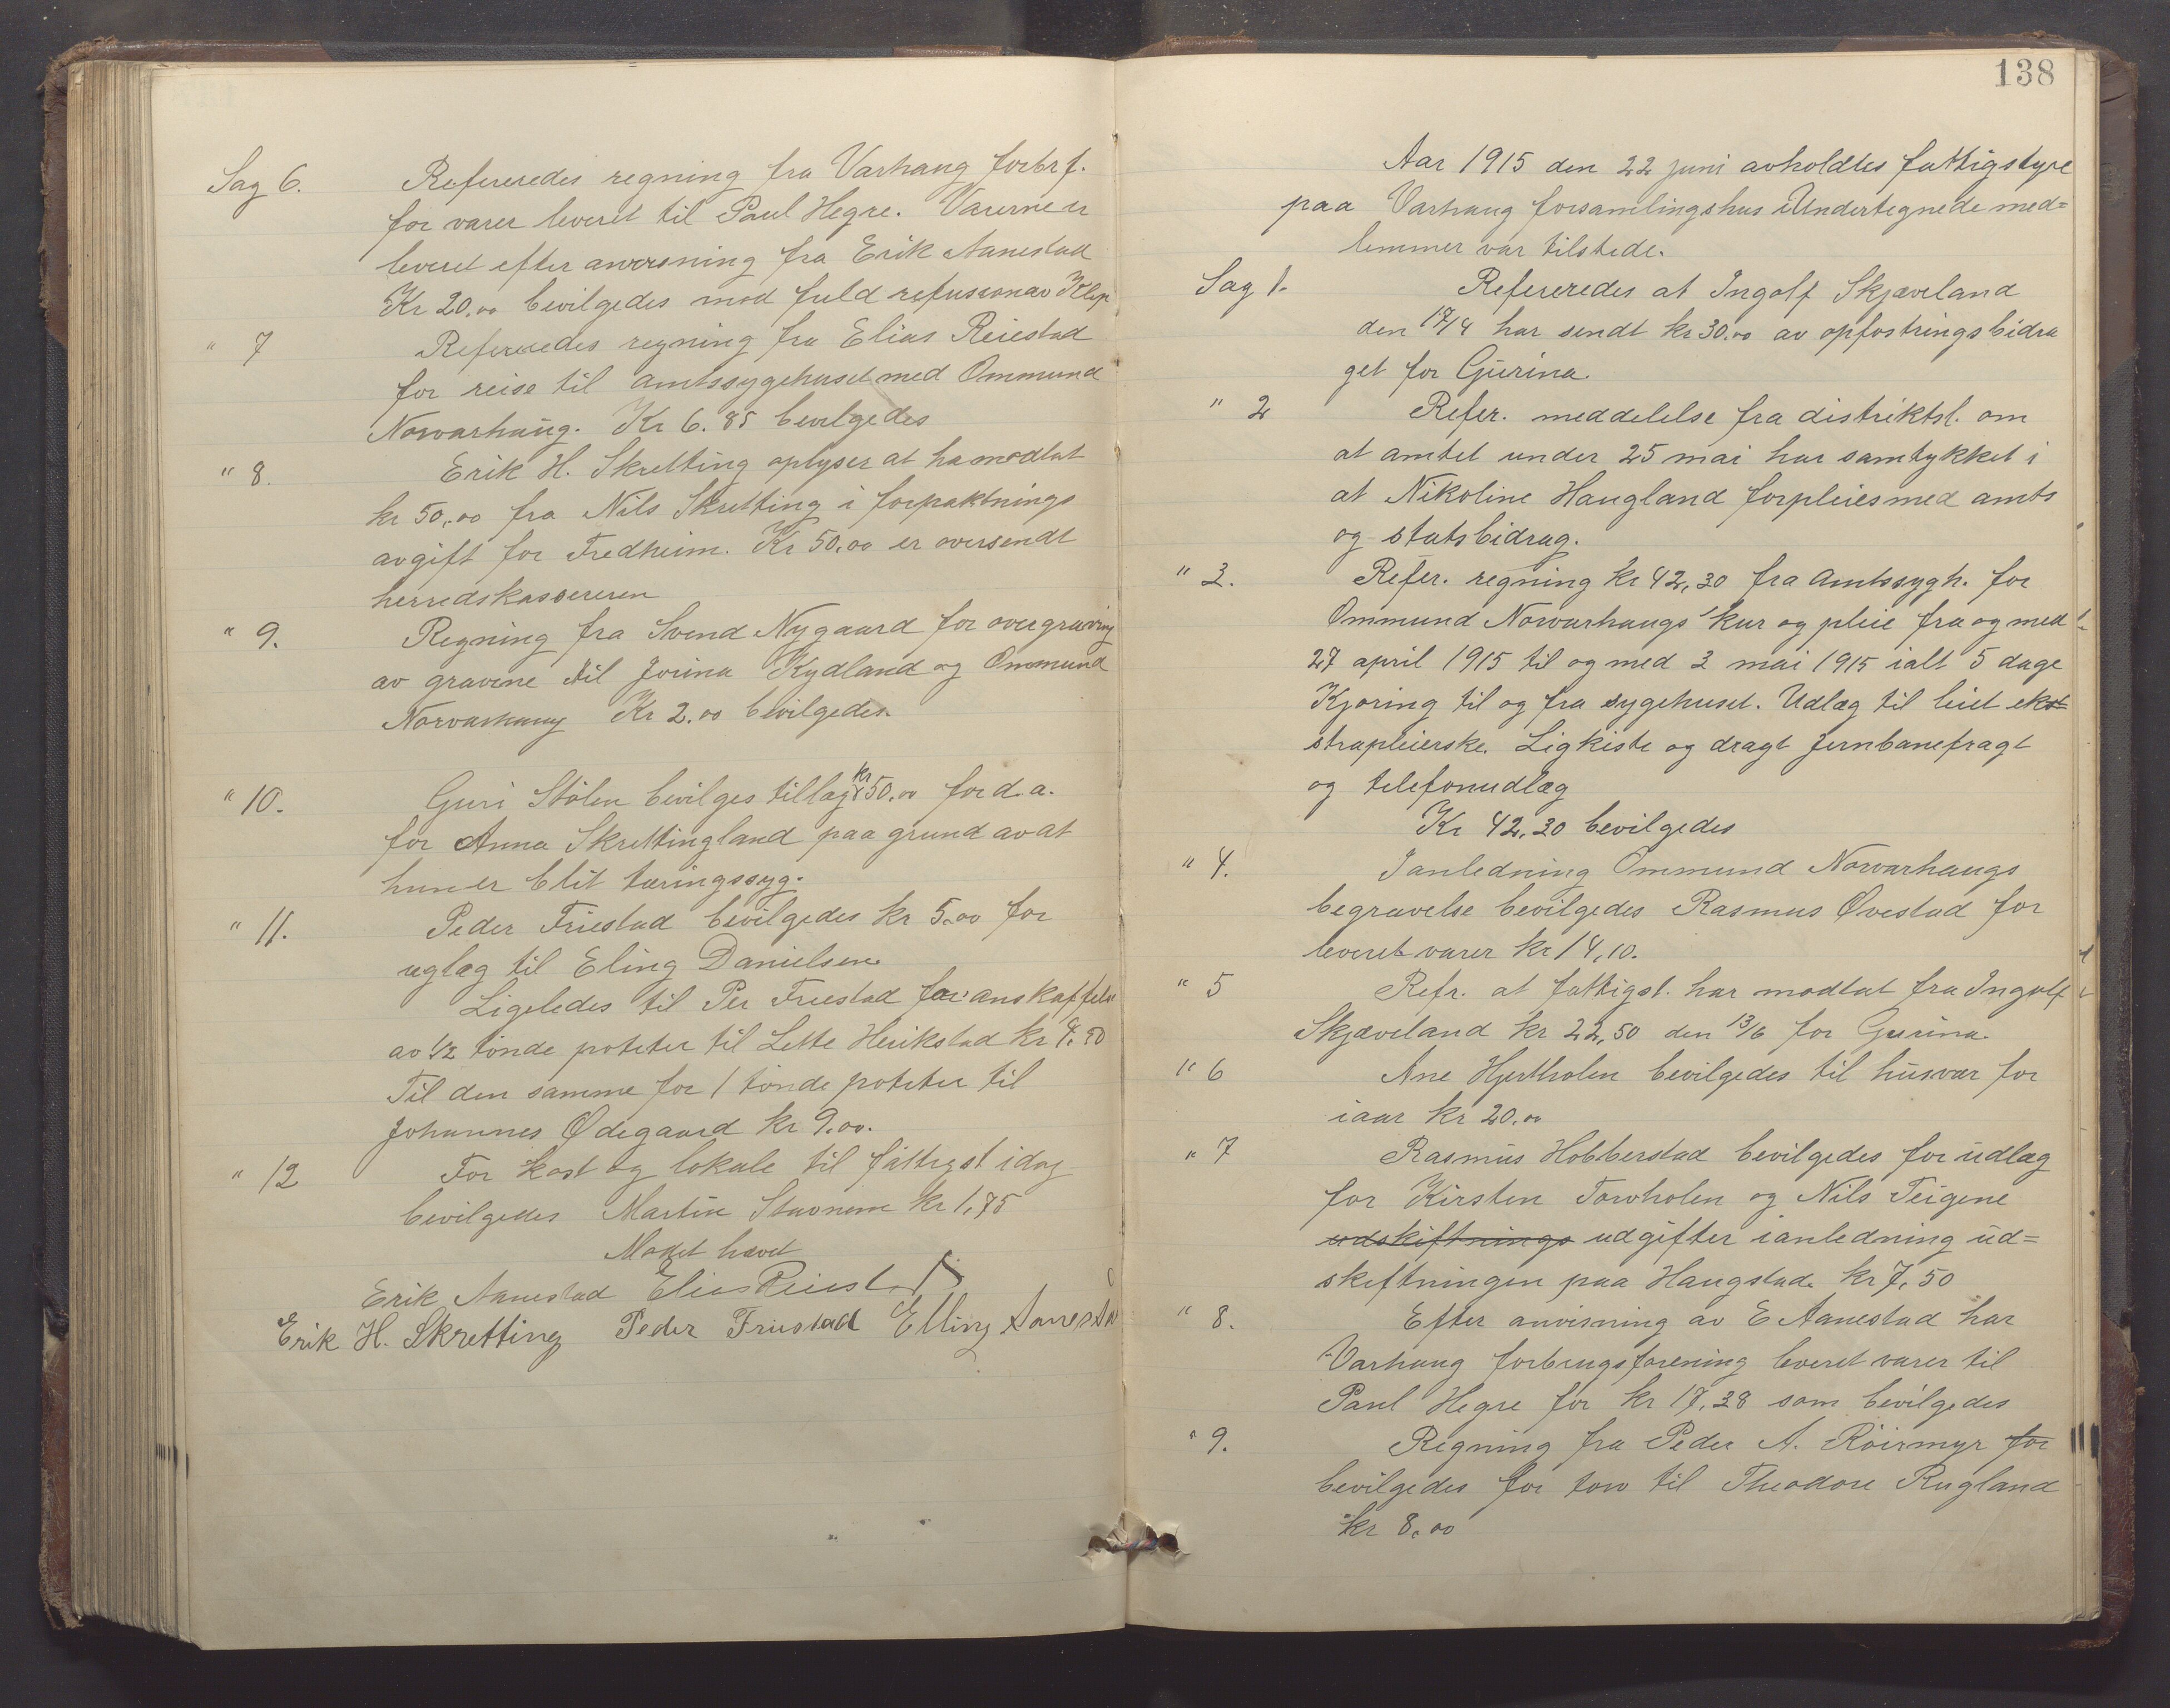 Sag 6. Refereredes regning fra Varhaug forbrf.
for varer leveret til Paul Hegre. Varerne er
leveret efter anvisning fra Erik Aanestad
Kr 20,00 bevilgedes mod fuld refusion av Klep
" 7 Refereredes regning fra Elias Reiestad
for reise til amtssygehuset med Ommund
Norvarhaug. Kr 6.85 bevilgedes
" 8. Erik H. Skretting oplyser at ha modtat
kr 50,00 fra Nils Skretting i forpaktnings
avgift for Fredheim. Kr 50,00 er oversendt
herredskassereren
" 9. Regning fra Svend Nygaard for overgraving
av gravene til Jorina Kydland og Ommund
Norvarhaug Kr 2.00 bevilgedes.
" 10. Guri Stølen bevilges tillæg kr 50,00 for d. a.
for Anna Skrettingland paa grund av at
hun er blit tæringssyg.
" 11. Peder Friestad bevilgedes kr 5.00 for
uglæg til Eling Danielsen
Ligeledes til Per Friestad for anskaffelse
av 1/2 tønde poteter til Lette Herikstad kr 4.50
Til den samme for 1 tønde poteter til
Johannes Ødegaard kr 9.00.
" 12 For kost og lokale til fattigst idag
bevilgedes Martin Stavnem kr 1,75
Møtet hævet
Erik Aanestad Elias Reiestad
Erik H. Skretting Peder Friestad Elling Aanestad
138
Aar 1915 den 22 juni avholdtes fattigstyre
paa Varhaug forsamlingshus Undertegnede med=
lemmer var tilstede.
Sag 1. Refereredes at Ingolf Skjæveland
den 17/4 har sendt kr 30.00 av opfostringsbidra
get for Gurina.
" 2 Refer. meddelelse fra distriktsl. om
at amtet under 25 mai har samtykket i
at Nikoline Haugland forpleies med amts
og statsbidrag.
" 3. Refer. regning kr 42,30 fra Amtssygh. for
Ommund Norvarhaugs kur og pleie fra og med
27 april 1915 til og med 3 mai 1915 ialt 5 dage
Kjøring til og fra sygehuset. Udlæg til leiet ek=
strapleierske. Ligkiste og dragt Jernbanefragt
og telefonudlæg
Kr 42,30 bevilgedes
" 4. I anledning Ommund Norvarhaugs
begravelse bevilgedes Rasmus Øvestad for
leveret varer kr 14,10.
" 5 Refr. at fattigst. har modtat fra Ingolf
Skjæveland kr 22,50 den 13/6 for Gurina.
" 6 Ane Hjertholen bevilgedes til husvær for
iaar kr 20.00
" 7 Rasmus Hobberstad bevilgedes for udlæg
for Kirsten Torvholen og Nils Teigene
udskiftnings udgifter ianledning ud=
skiftningen paa Haugstad. kr 7,50
" 8. Efter anvisning av E Aanestad har
Varhaug forbrugsforening leveret varer til
Paul Hegre for kr 17,38 som bevilgedes
" 9. Regning fra Peder A. Røirmyr for
bevilgedes for torv til Theodore Rugland
kr 8,00